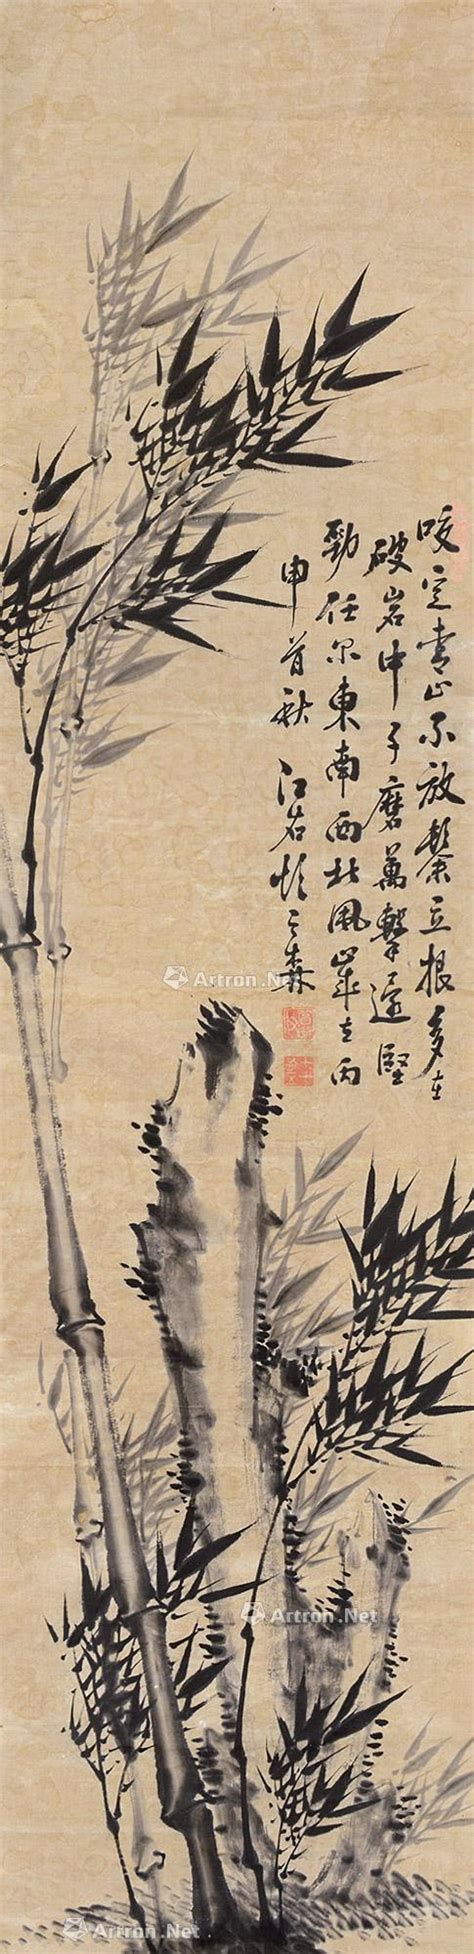 咬定青山不放鬆立根多在
破岩中千磨萬擊還堅
勁任尔東南西北風歲在丙
申首秋 江右
Artron.Net
Artron.Net
Artron.Net